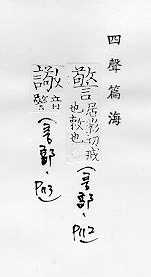 四聲篇海
警居影切戒
也敕也
(言部、P112)
音
警
(言部、P113)